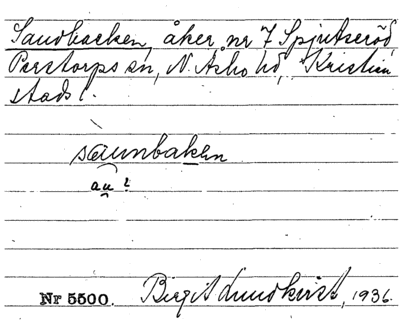 Sandbacken, åker, nr 7 Spjutseröd,
Perstorps sn, N. Åsbo hd, Kristian
stads l.
sæunbaken
au ?
Nr 5500. Birgit Lundkvist, 1936.